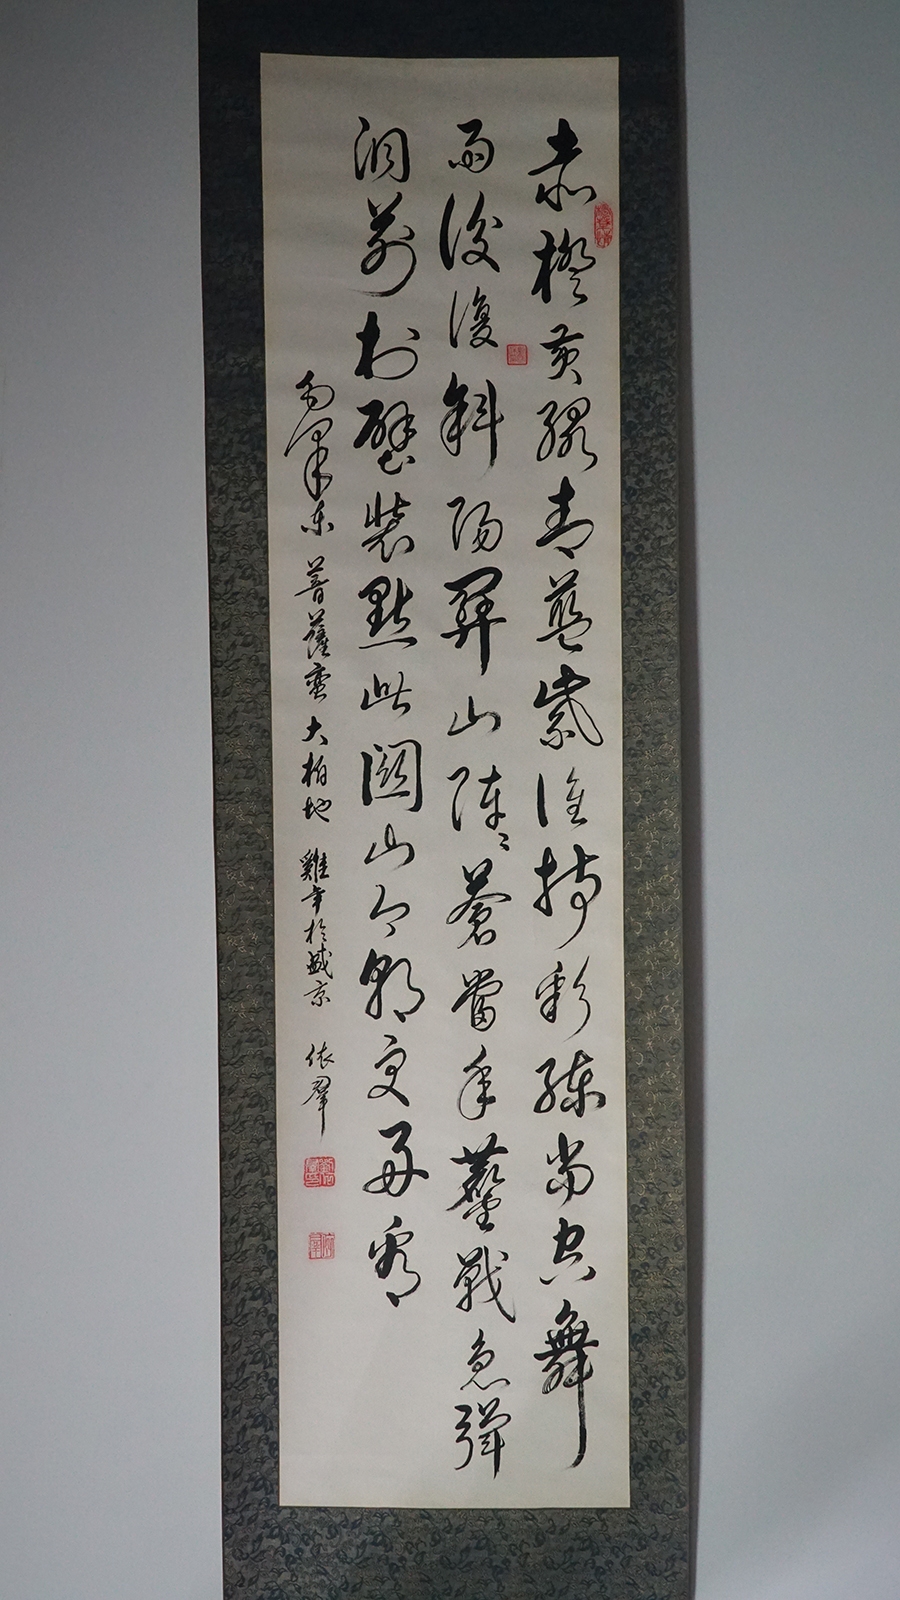 赤橙黄绿青蓝紫谁持彩练当空舞
雨後復斜阳関山阵阵蒼當年鏖戰急弹
洞前村壁装點此関山今朝更好看
毛泽东 菩薩蛮 大柏地 雞年於盛京 依群